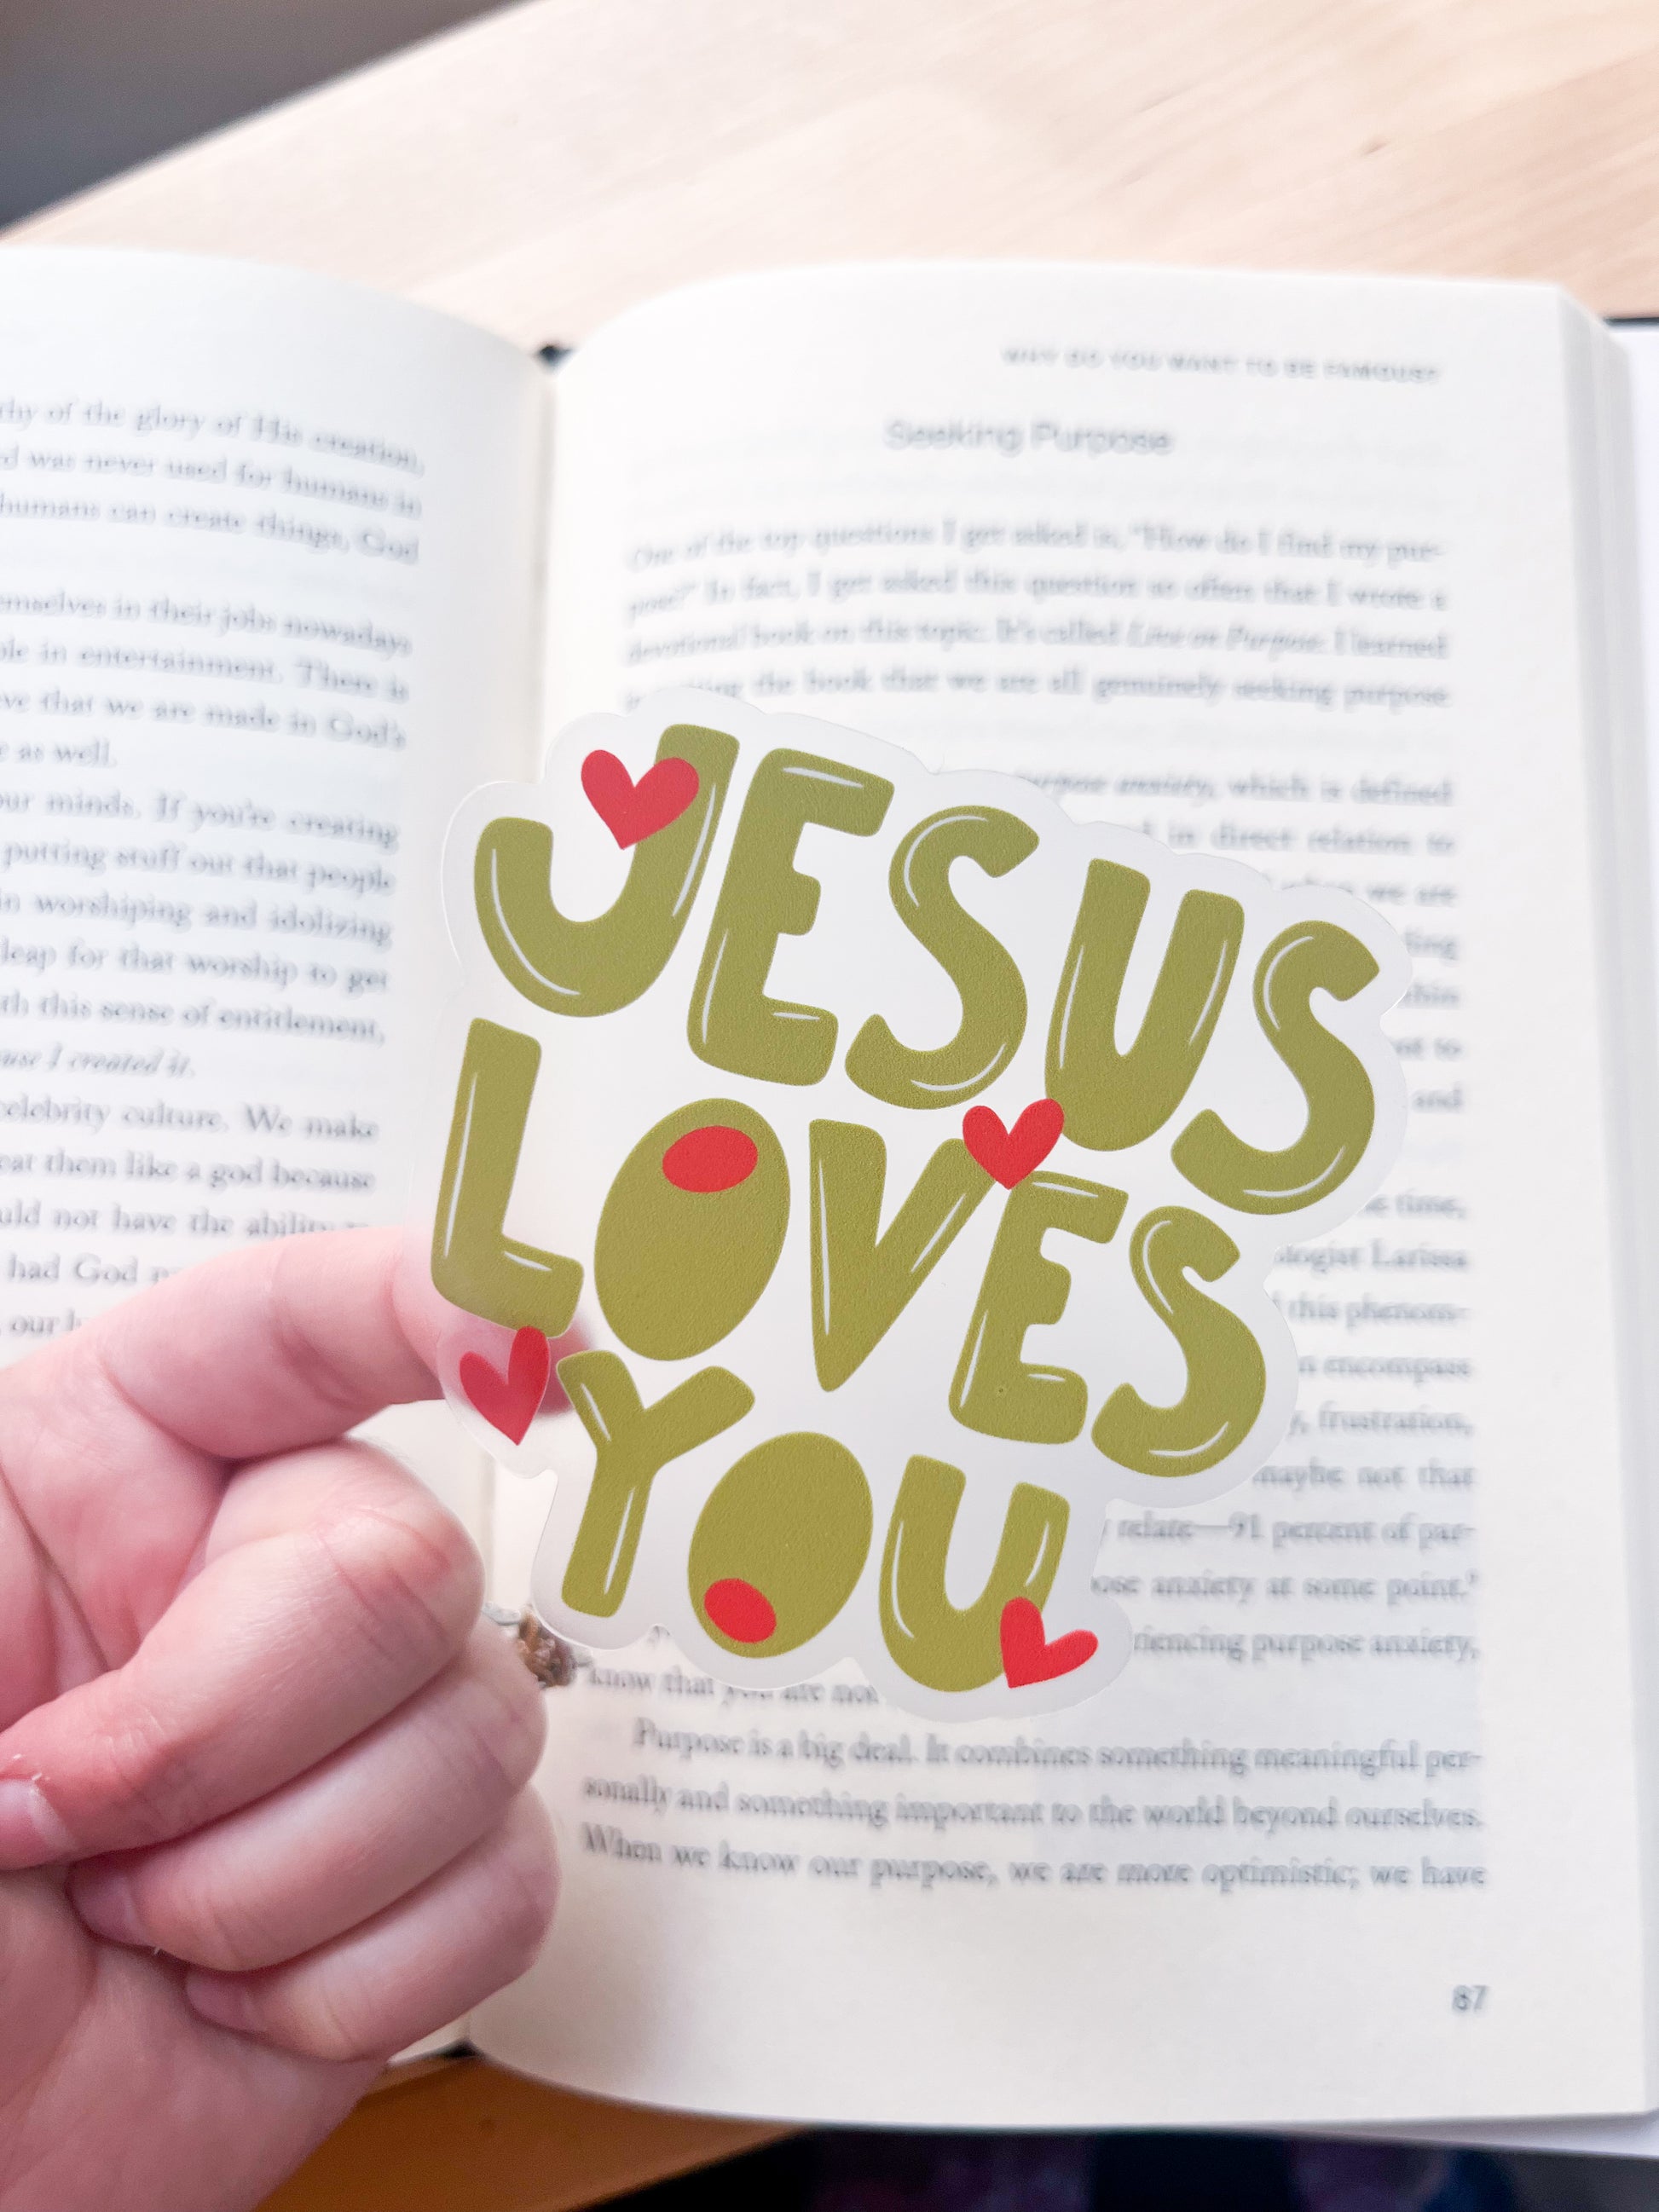 thy of the glory of His creation,
d was never used for humans in
humans can create things, God
emselves in their jobs nowadays
ple in entertainment. There is
ve that we are made in God's
e as well.
our minds. If you're creating
putting stuff out that people
in worshiping and idolizing
leap for that worship to get
th this sense of entitlement,
use I created it.
celebrity culture. We make
eat them like a god because
uld not have the ability
had God
our
WHY DO YOU WANT TO BE FAMOUS?
Seeking Purpose
One of the top questions I get asked is, "How do I find my pur-
pose?" In fact, I get asked this question so often that I wrote a
devotional book on this topic. It's called Live on Purpose. I learned
the book that we are all genuinely seeking purpose
purpose anxiety, which is defined
in direct relation to
when we are
and
time,
ologist Larissa
this phenom-
encompass
frustration,
maybe not that
relate—91 percent of par-
ose anxiety at some point."
riencing purpose anxiety,
know that you are not
Purpose is a big deal. It combines something meaningful per-
sonally and something important to the world beyond ourselves.
When we know our purpose, we are more optimistic; we have
87
JESUS
LOVES
YOU